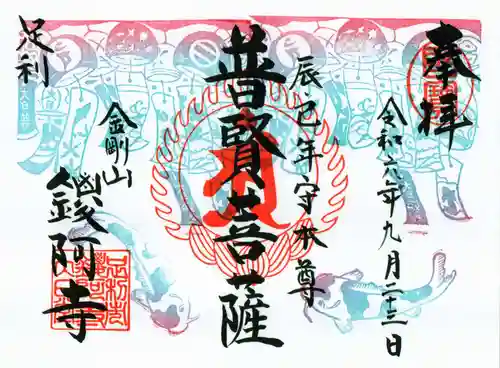 奉拝
令和六年九月二十三日
辰・巳年守本尊
普賢菩薩
足利
金剛山
鑁阿寺